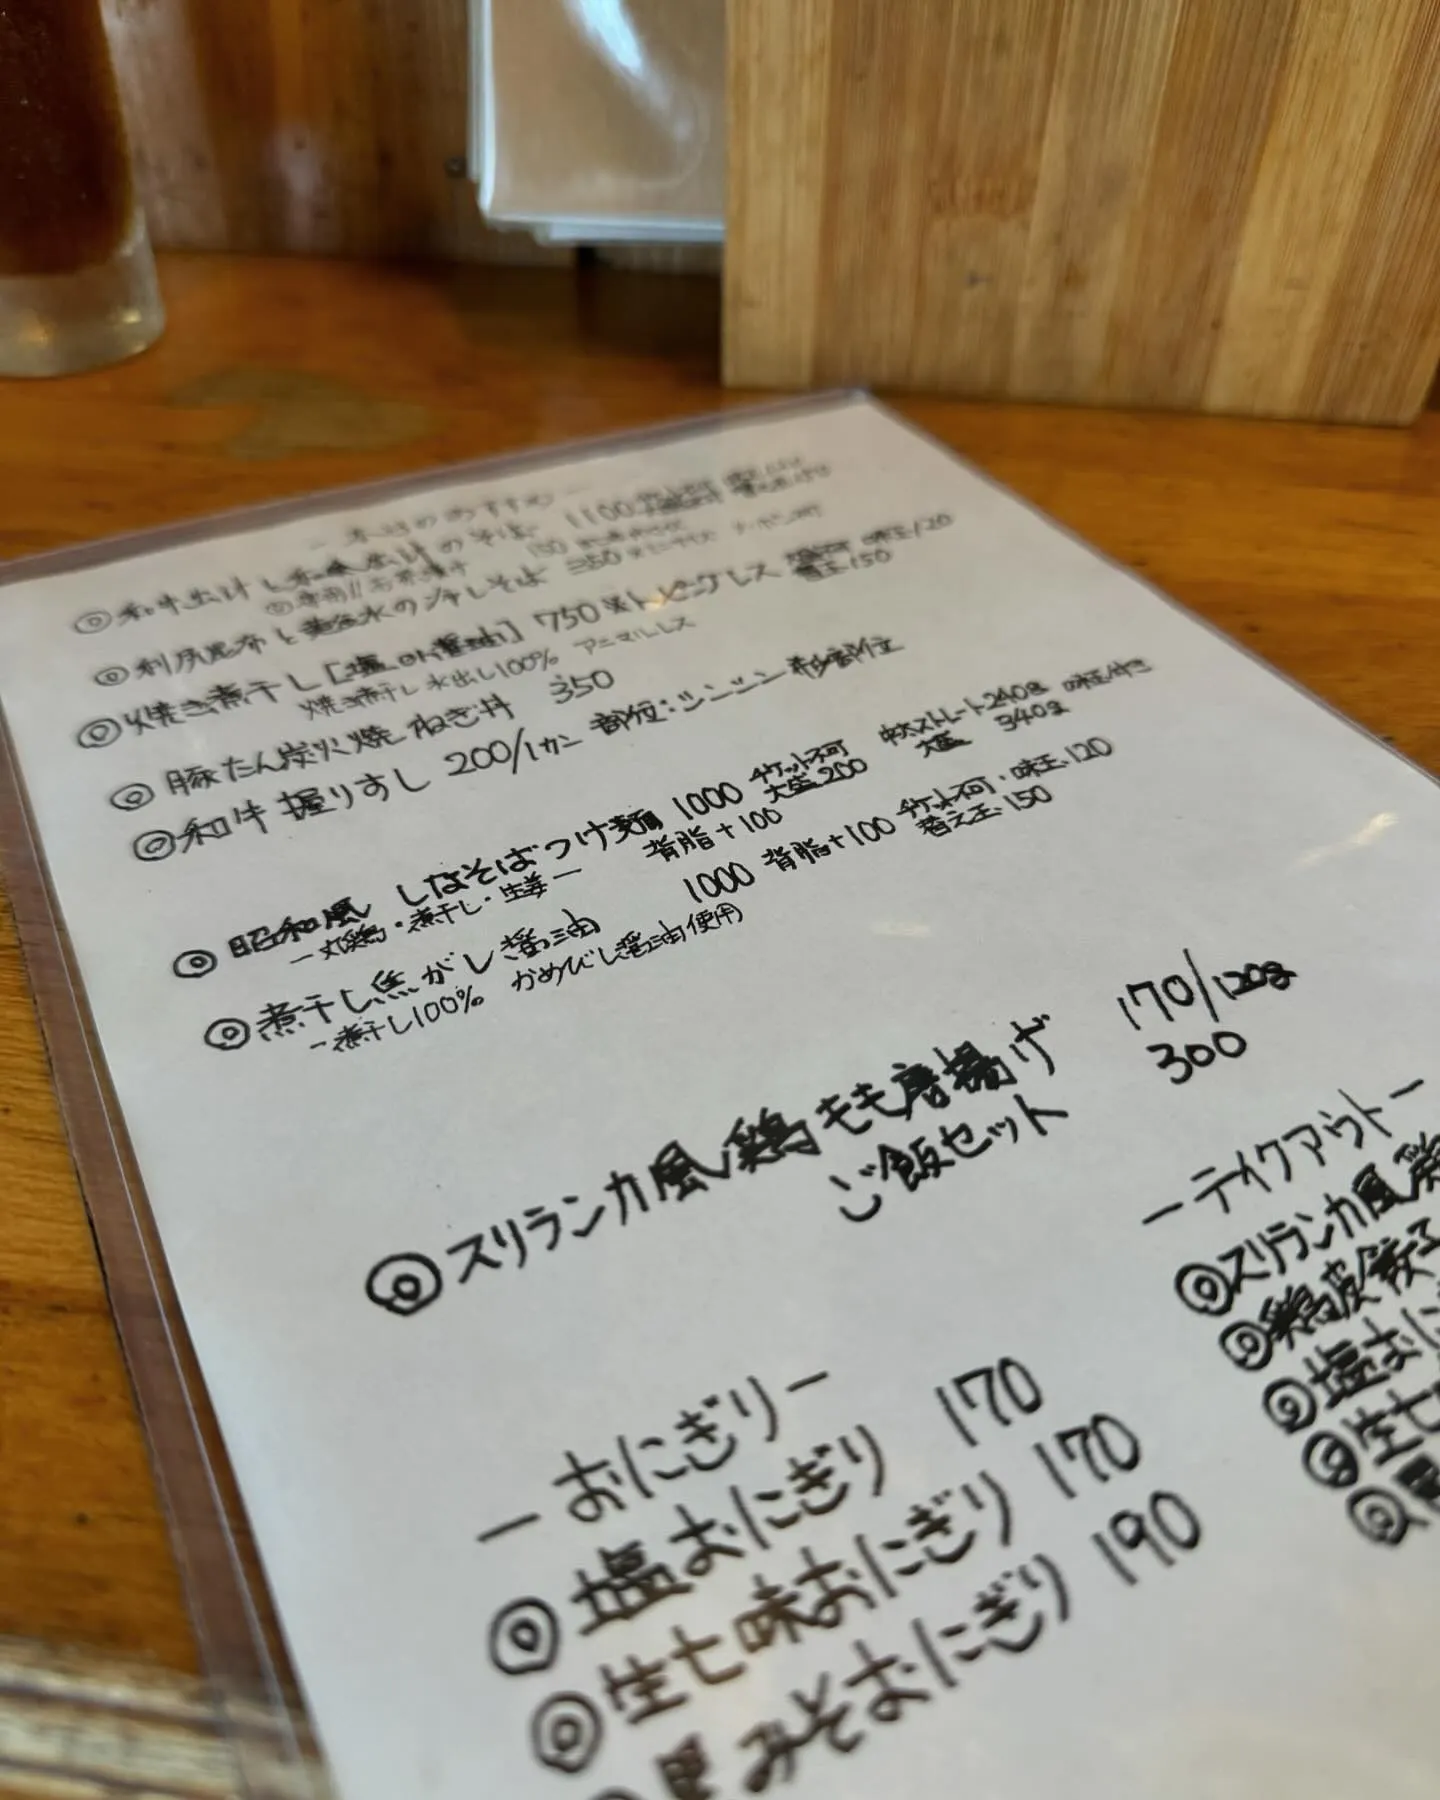 －本日のおすすめ－
◎和牛出汁と和風出汁のそば 1100
◎利尻昆布と黄金水の冷しそば 350
◎焼き煮干し[塩 or 醤油] 750 ※トッピングレス 味玉120
焼き煮干し水出し100% アニマルレス 替玉150
◎豚たん炭火焼ねぎ丼 350
◎和牛握りすし 200/1カン 部位:シンシン 希少部位
◎昭和風 しなそばつけ麺 1000 チケット不可 中太ストレート240g 味玉付き
－丸鶏・煮干し・生姜－ 背脂+100 大盛200 大盛 340g
◎煮干し焦がし醤油 1000 背脂+100 チケット不可・味玉120
－煮干し100% かめびし醤油使用 替え玉150
◎スリランカ風鶏もも唐揚げ 170/120g
ご飯セット 300
－おにぎり－
◎塩おにぎり 170
◎生七味おにぎり 170
みそおにぎり 190
－テイクアウト－
◎スリランカ風鶏
◎鶏皮餃子
◎塩おに
◎生七